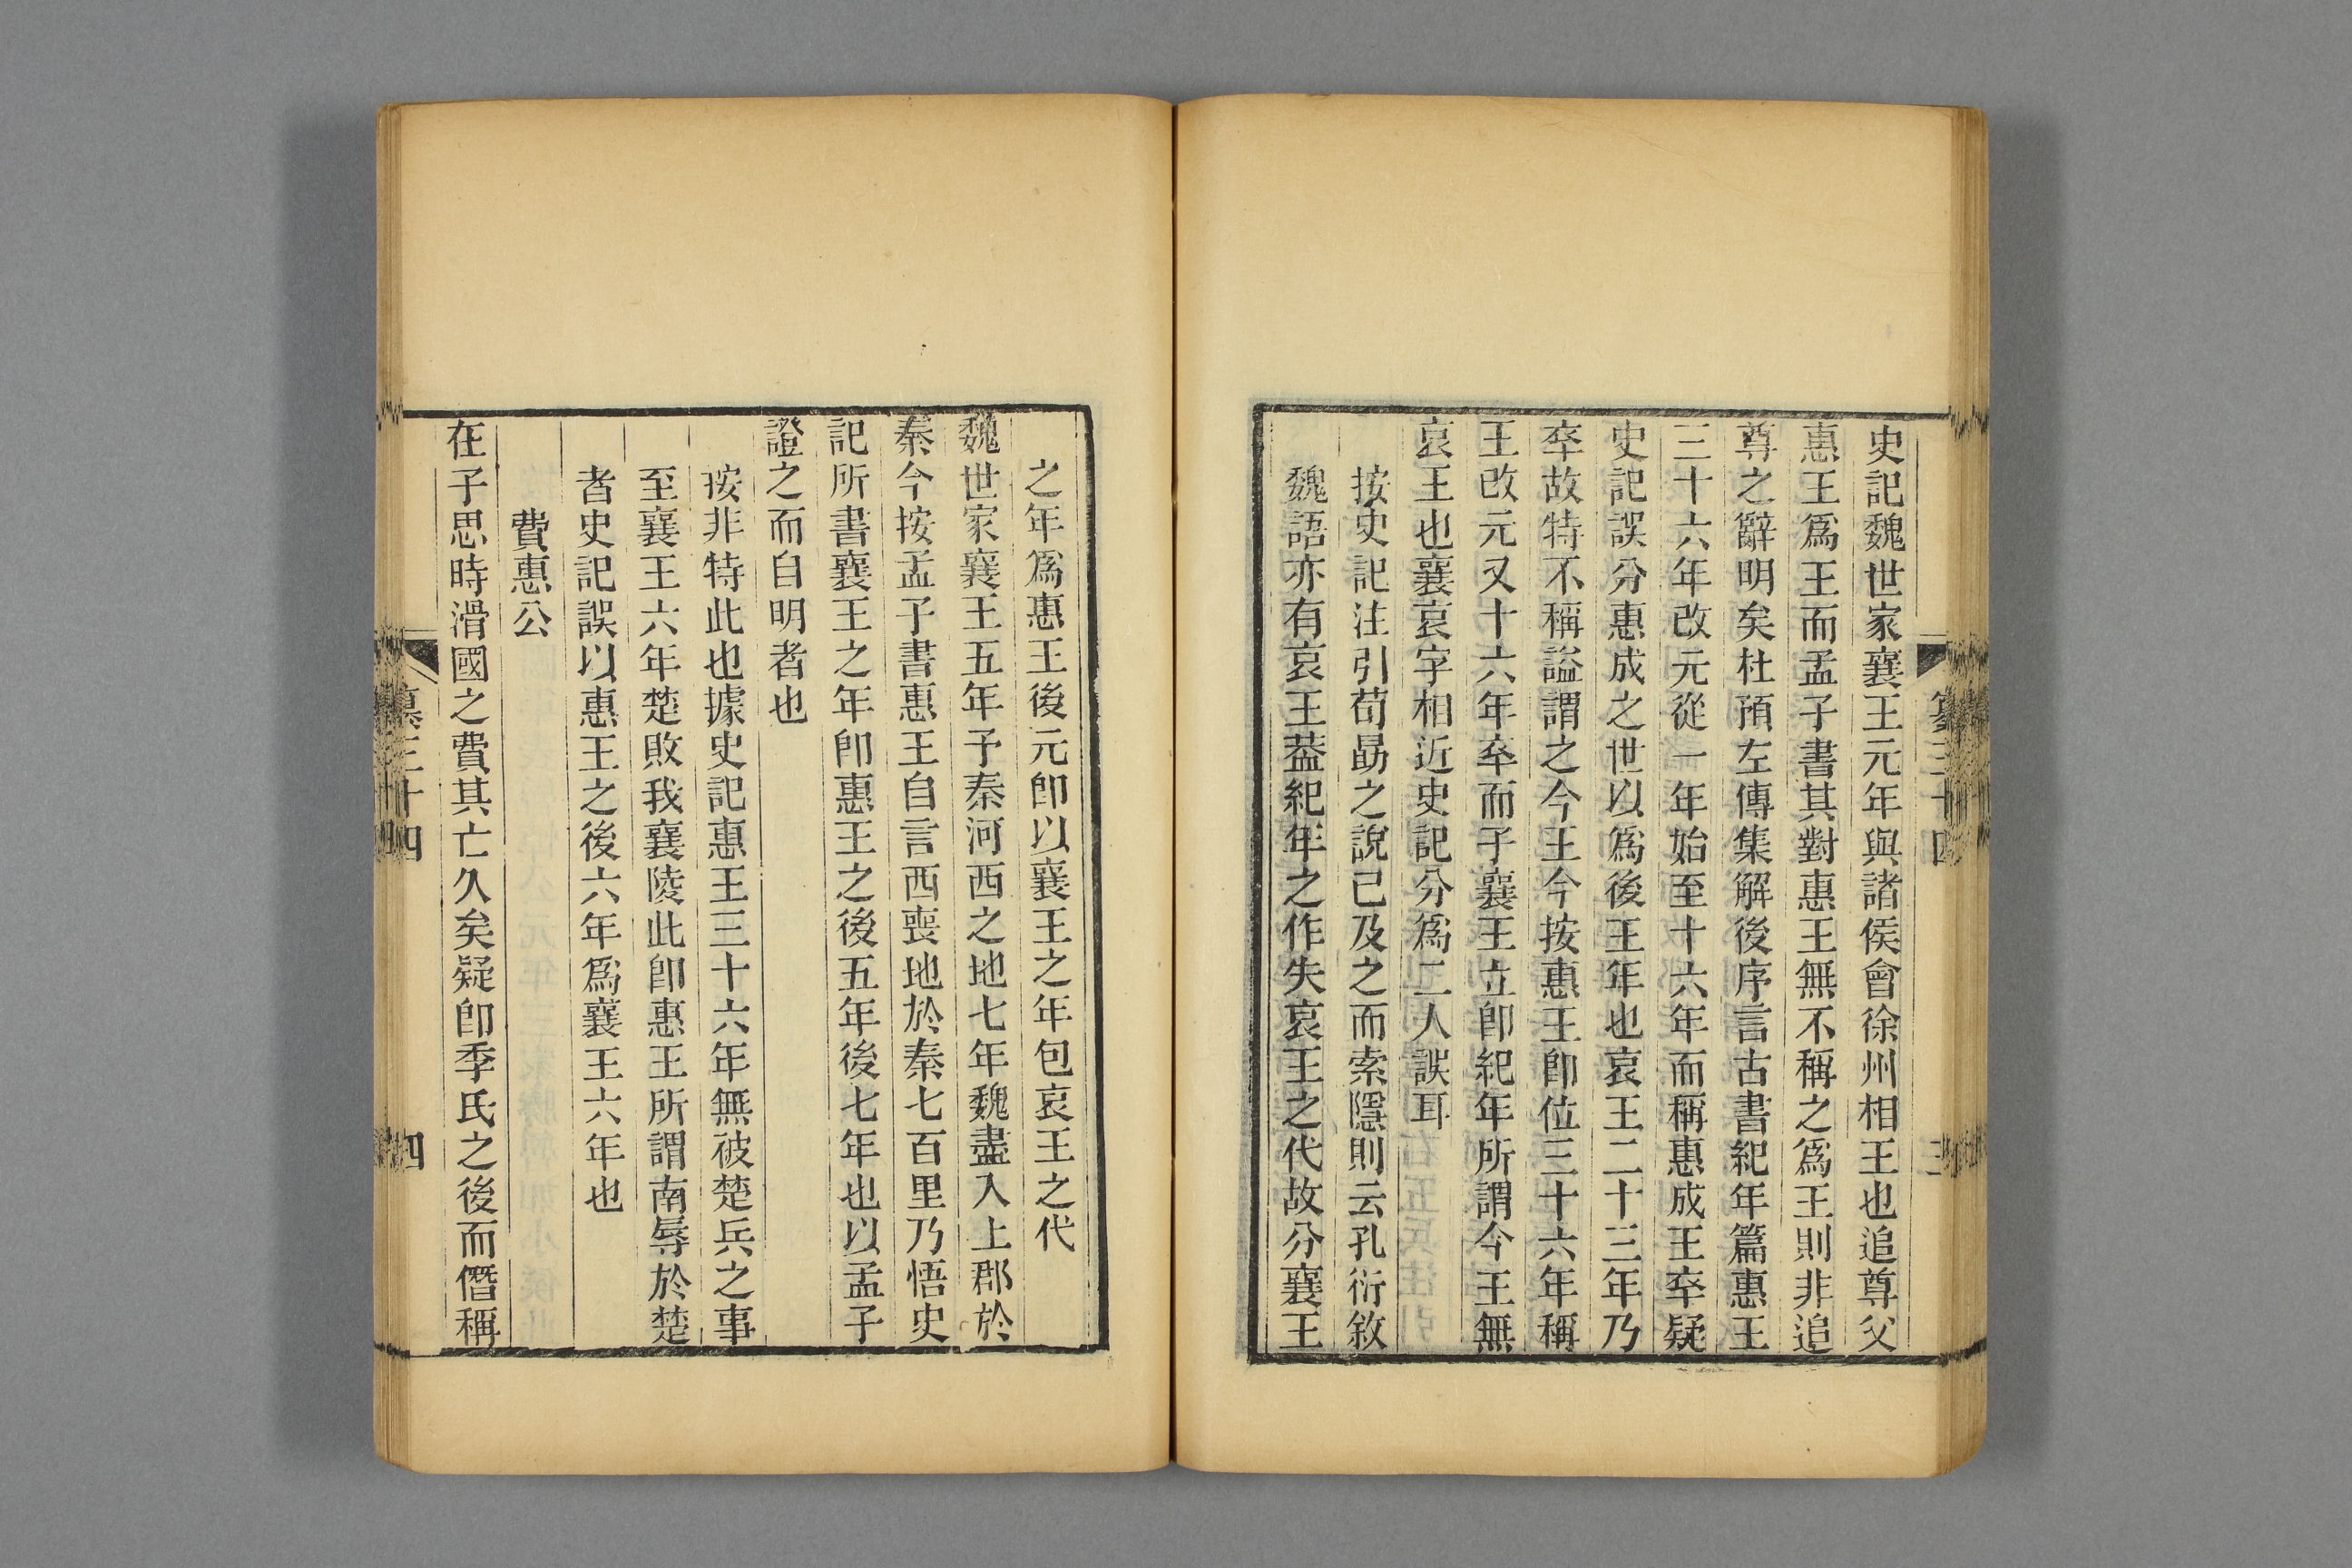 史記魏世家襄王元年與諸侯會徐州相王也追尊父
惠王爲王而孟子書其對惠王無不稱之爲王則非追
尊之辭明矣杜預左傳集解後序言古書紀年篇惠王
三十六年改元從一年始至十六年而稱惠成王卒疑
史記誤分惠成之世以爲後王年也哀王二十三年乃
卒故特不稱謚謂之今王今按惠王卽位三十六年稱
王改元又十六年卒而子襄王立卽紀年所謂今王無
哀王也襄哀字相近史記分爲二人誤耳
按史記注引荀勗之說已及之而索隱則云孔衍敘
魏語亦有哀王葢紀年之作失哀王之代故分襄王
之年爲惠王後元卽以襄王之年包哀王之代
魏世家襄王五年予秦河西之地七年魏盡入上郡於
秦今按孟子書惠王自言西喪地於秦七百里乃悟史
記所書襄王之年卽惠王之後五年後七年也以孟子
證之而自明者也
按非特此也據史記惠王三十六年無被楚兵之事
至襄王六年楚敗我襄陵此卽惠王所謂南辱於楚
者史記誤以惠王之後六年爲襄王六年也
費惠公
在子思時滑國之費其亡久矣疑卽季氏之後而僭稱
四